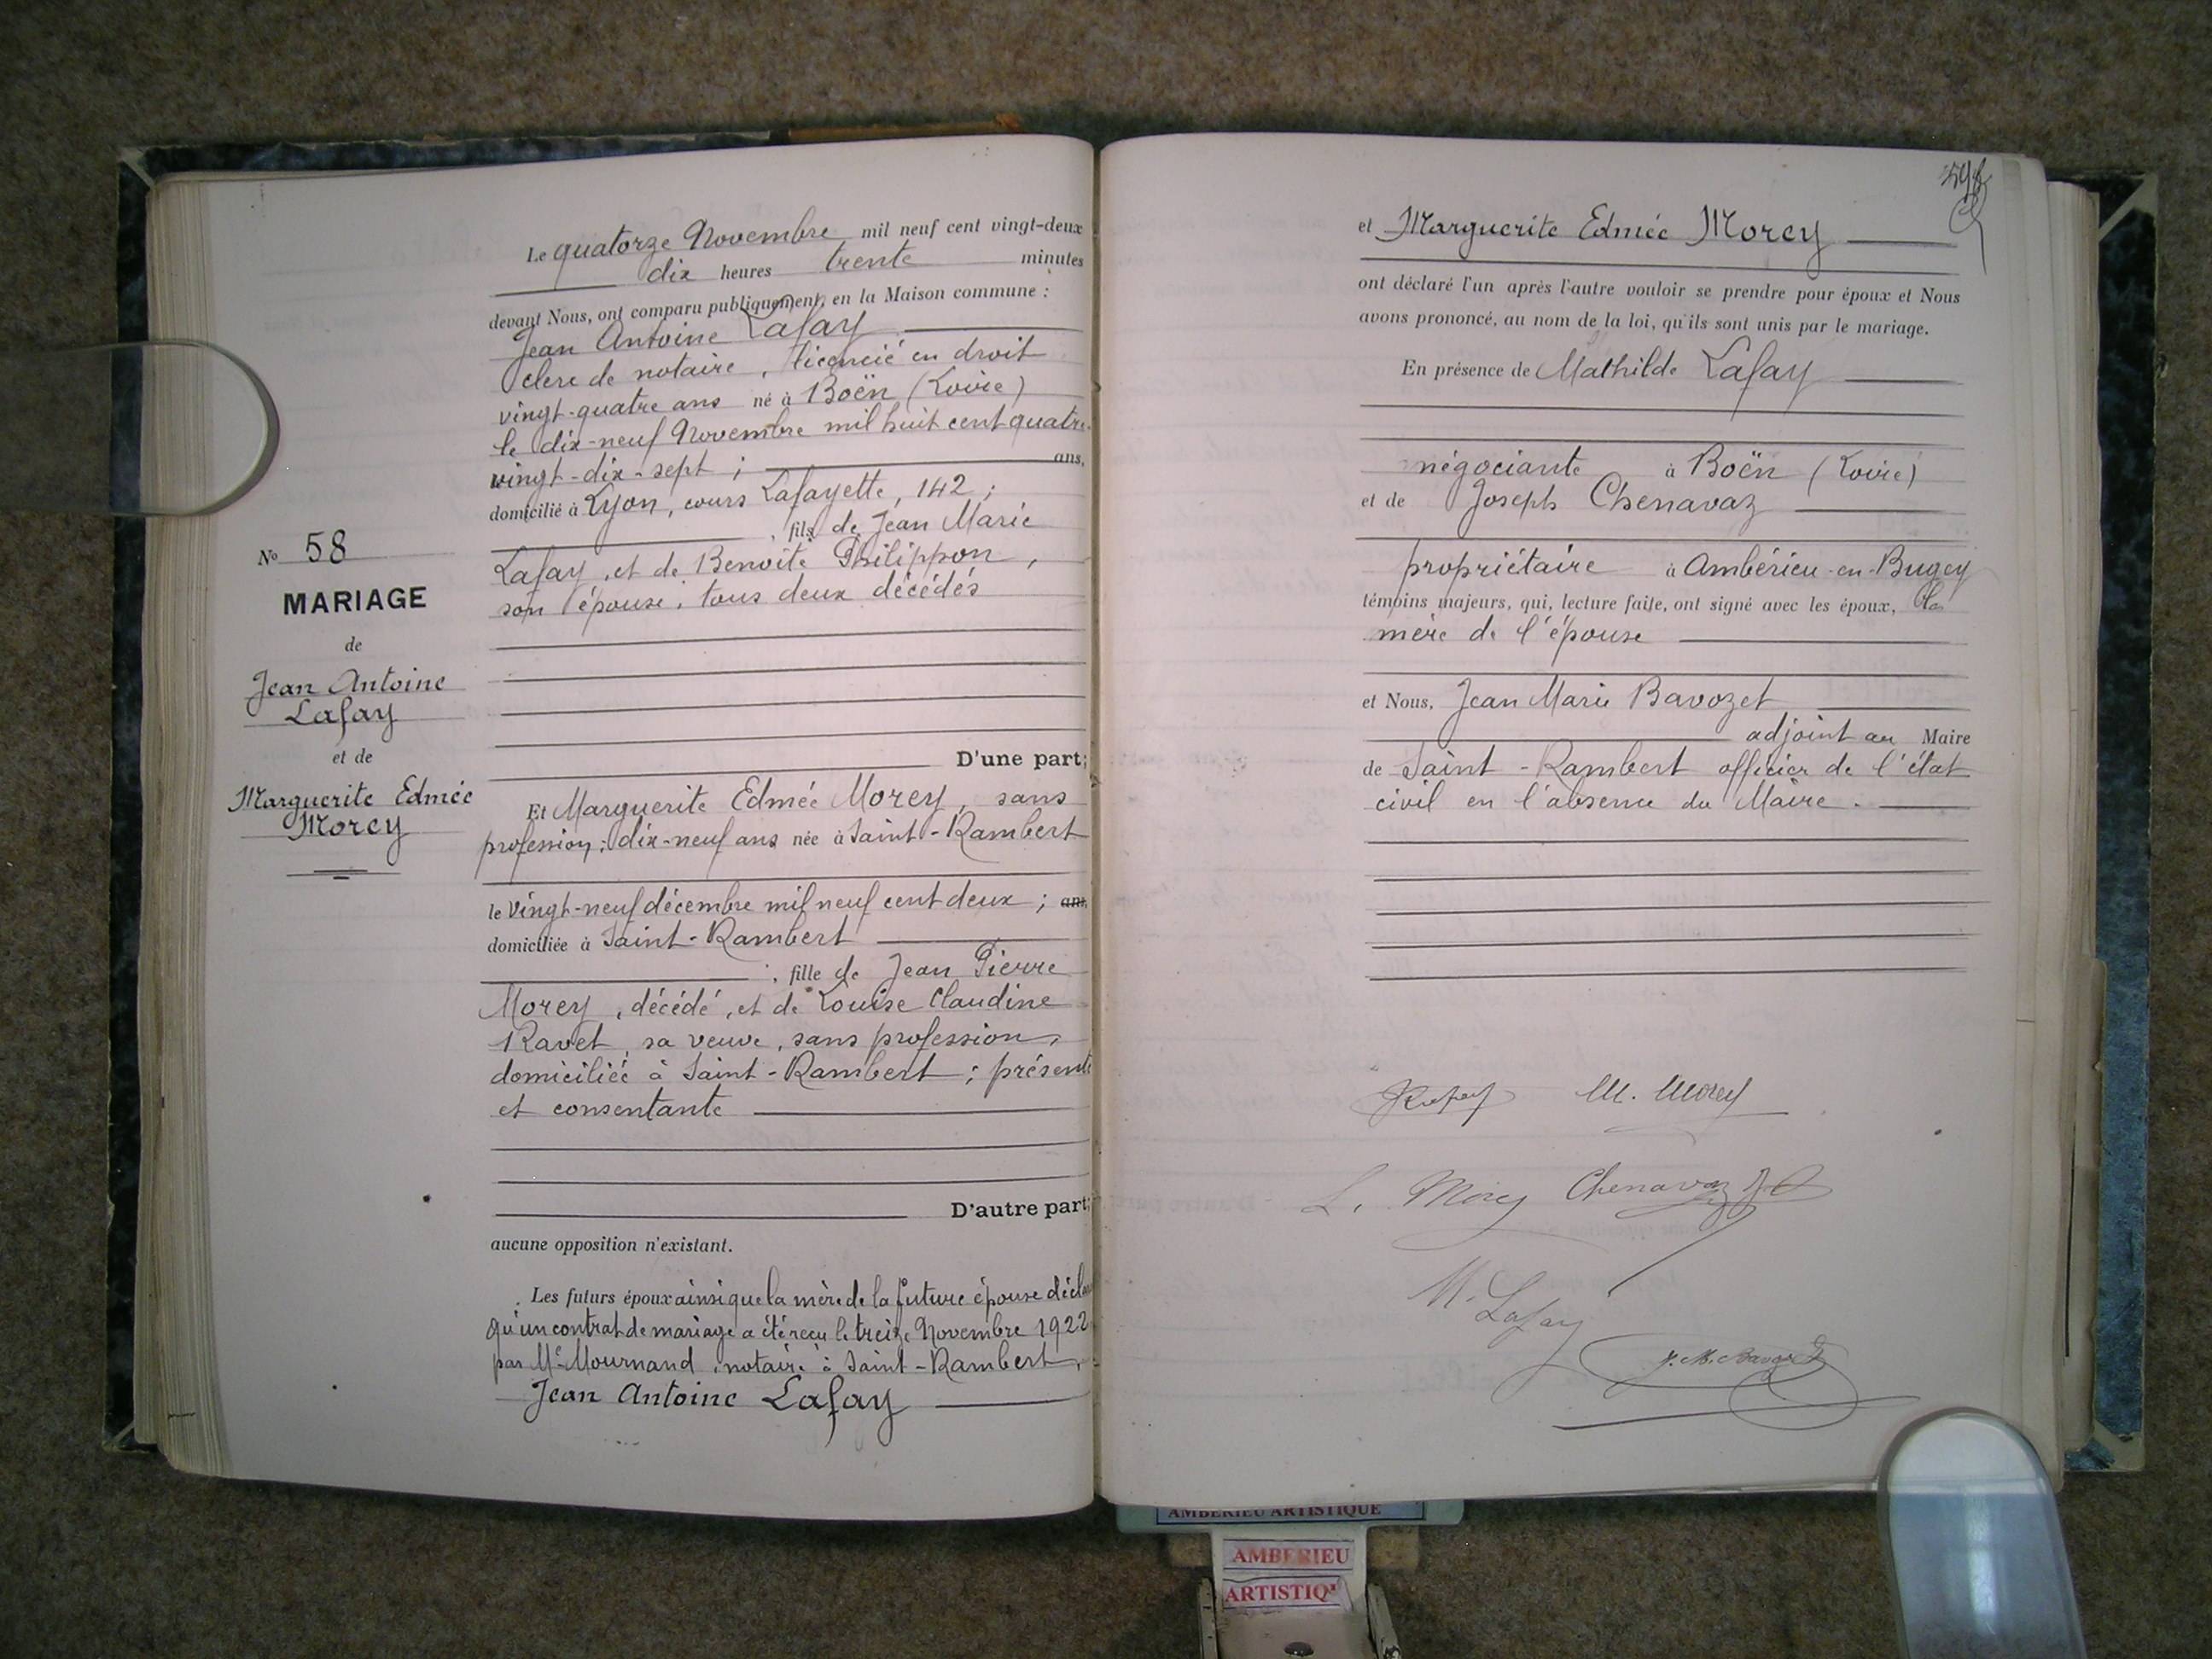 N° 58
MARIAGE
de
Jean Antoine
Lafay
et de
Marguerite Edmée
Morey
Le quatorze Novembre mil neuf cent vingt-deux
dix heures trente minutes
devant Nous, ont comparu publiquement, en la Maison commune :
Jean Antoine Lafay
clerc de notaire, licencié en droit
vingt-quatre ans né à Boën (Loire)
le dix-neuf Novembre mil huit cent quatre-
vingt-dix-sept ; ans,
domicilié à Lyon, cours Lafayette, 142 ;
, fils de Jean Marie
Lafay, et de Benoîte Philippon,
son épouse, tous deux décédés
D'une part;
Et Marguerite Edmée Morey, sans
profession ; dix-neuf ans née à Saint-Rambert
le vingt-neuf décembre mil neuf cent deux ; ans,
domiciliée à Saint-Rambert
; fille de Jean Pierre
Morey, décédé, et de Louise Claudine
Ravet, sa veuve, sans profession,
domiciliée à Saint-Rambert ; présente
et consentante
D'autre part;
aucune opposition n'existant.
Les futurs époux ainsi que la mère de la future épouse
qu'un contrat de mariage a été reçu le treize Novembre 1922
par Me Mournand, notaire à Saint-Rambert.
Jean Antoine Lafay
et Marguerite Edmée Morey
ont déclaré l'un après l'autre vouloir se prendre pour époux et Nous
avons prononcé, au nom de la loi, qu'ils sont unis par le mariage.
En présence de Mathilde Lafay
négociante à Boën (Loire)
et de Joseph Chenavaz
propriétaire à Ambérieu-en-Bugey
témoins majeurs, qui, lecture faite, ont signé avec les époux, la
mère de l'épouse
et Nous, Jean Marie Bavozet
adjoint au Maire
de Saint-Rambert officier de l'état
civil en l'absence du Maire.
M. Morey
L. Morey Chenavaz
M. Lafay
J. M. Bavozet
AMBERIEU ARTISTIQUE
AMBERIEU
ARTISTIQ